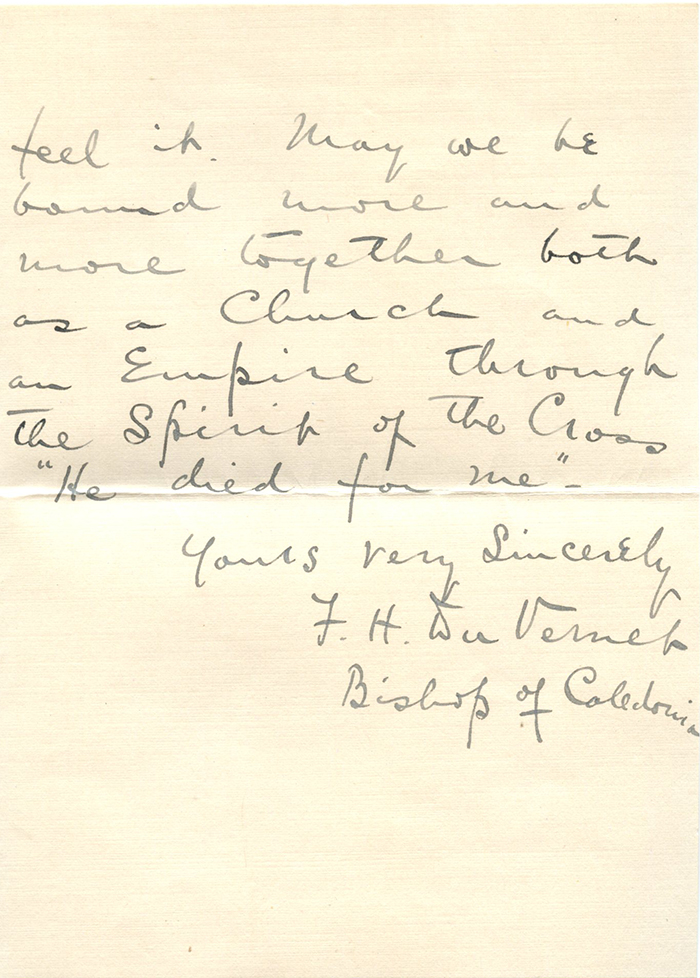 feel it. May we be
bound more and
more together both
as a Church and
an Empire through
the Spirit of the Cross
"He died for me"-
Yours very Sincerely
F. H. Du Vernet
Bishop of Caledonia